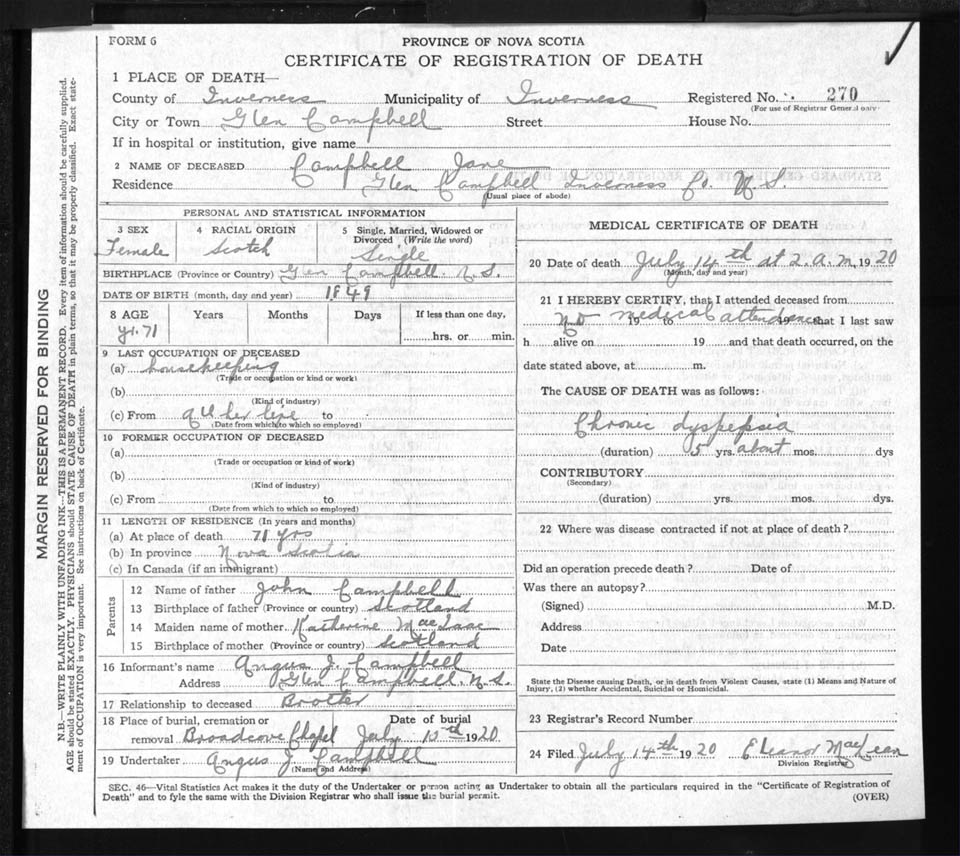 FORM 6
PROVINCE OF NOVA SCOTIA
CERTIFICATE OF REGISTRATION OF DEATH
1 PLACE OF DEATH—
County of Inverness Municipality of Inverness Registered No. 270
(For use of Registrar General only)
City or Town Glen Campbell Street House No.
If in hospital or institution, give name
2 NAME OF DECEASED Campbell Jane
Residence Glen Campbell Inverness Co. N.S.
(Usual place of abode)
PERSONAL AND STATISTICAL INFORMATION
3 SEX Female
4 RACIAL ORIGIN Scotch
5 Single, Married, Widowed or Divorced (Write the word) Single
BIRTHPLACE (Province or Country) Glen Campbell. N.S.
DATE OF BIRTH (month, day and year) 1849
8 AGE Years Months Days If less than one day,
yr. 71 hrs. or min.
9 LAST OCCUPATION OF DECEASED
(a) housekeeping
(Trade or occupation or kind or work)
(b)
(Kind of industry)
(c) From all her live to
(Date from which to which so employed)
10 FORMER OCCUPATION OF DECEASED
(a)
(Trade or occupation or kind of work)
(b)
(Kind of industry)
(c) From to
(Date from which to which so employed)
11 LENGTH OF RESIDENCE (In years and months)
(a) At place of death 71 yrs
(b) In province Nova Scotia
(c) In Canada (if an immigrant)
Parents
12 Name of father John Campbell
13 Birthplace of father (Province or country) Scotland
14 Maiden name of mother Katherine MacIsaac
15 Birthplace of mother (Province or country) Scotland
16 Informant's name Angus J. Campbell
Address Glen Campbell. N.S.
17 Relationship to deceased Brotter
18 Place of burial, cremation or Date of burial
removal Broadcove Chapel July 15th 1920
19 Undertaker Angus J. Campbell
(Name and Address)
MEDICAL CERTIFICATE OF DEATH
20 Date of death July 14th at 2. a.m. 1920
(Month, day and year)
21 I HEREBY CERTIFY, that I attended deceased from
No medical attendance
19 to 19 that I last saw
h alive on 19 and that death occurred, on the
date stated above, at m.
The CAUSE OF DEATH was as follows:
Chronic dyspepsia
(duration) 5 yrs. about mos. dys
CONTRIBUTORY
(Secondary)
(duration) yrs. mos. dys.
22 Where was disease contracted if not at place of death?
Did an operation precede death? Date of
Was there an autopsy?
(Signed) M.D.
Address
Date
State the Disease causing Death, or in death from Violent Causes, state (1) Means and Nature of
Injury, (2) whether Accidental, Suicidal or Homicidal.
23 Registrar's Record Number
24 Filed July 14th 1920 Eleanor MacLean
Division Registrar
SEC. 46—Vital Statistics Act makes it the duty of the Undertaker or person acting as Undertaker to obtain all the particulars required in the "Certificate of Registration of
Death" and to fyle the same with the Division Registrar who shall issue the burial permit.
(OVER)
MARGIN RESERVED FOR BINDING
N.B.—WRITE PLAINLY WITH UNFADING INK—THIS IS A PERMANENT RECORD. Every item of information should be carefully supplied.
AGE should be stated EXACTLY. PHYSICIANS should STATE CAUSE OF DEATH in plain terms, so that it may be properly classified. Exact state-
ment of OCCUPATION is very important. See instructions on back of Certificate.